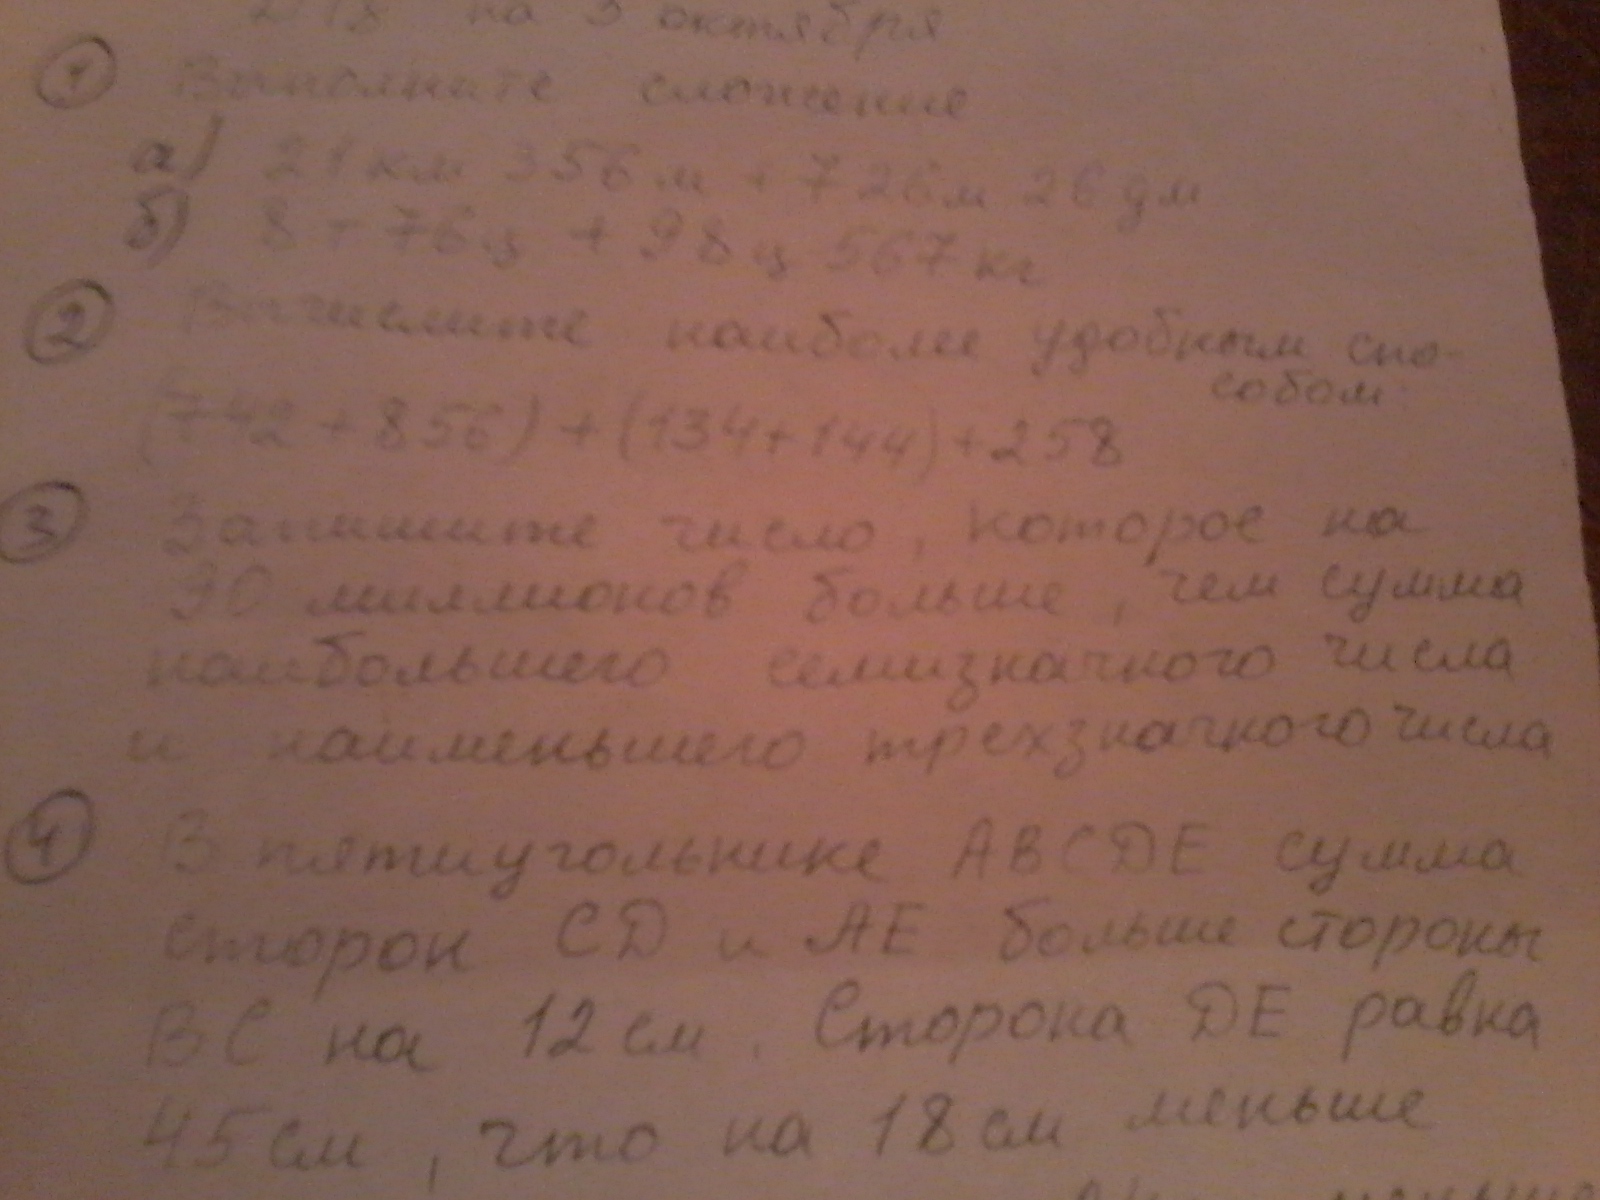 на 3 октября
1 Выполните сложение
а) 21 км 356 м + 726 м 26 дм
б) 8 т 76 ц + 98 ц 567 кг
2 Вычислите наиболее удобным спо-
собом:
(742 + 856) + (134 + 144) + 258
3 Запишите число, которое на
30 миллионов больше, чем сумма
наибольшего семизначного числа
и наименьшего трехзначного числа
4 В пятиугольнике ABCDE сумма
сторон CD и AE больше стороны
BC на 12 см. Сторона DE равна
45 см, что на 18 см меньше